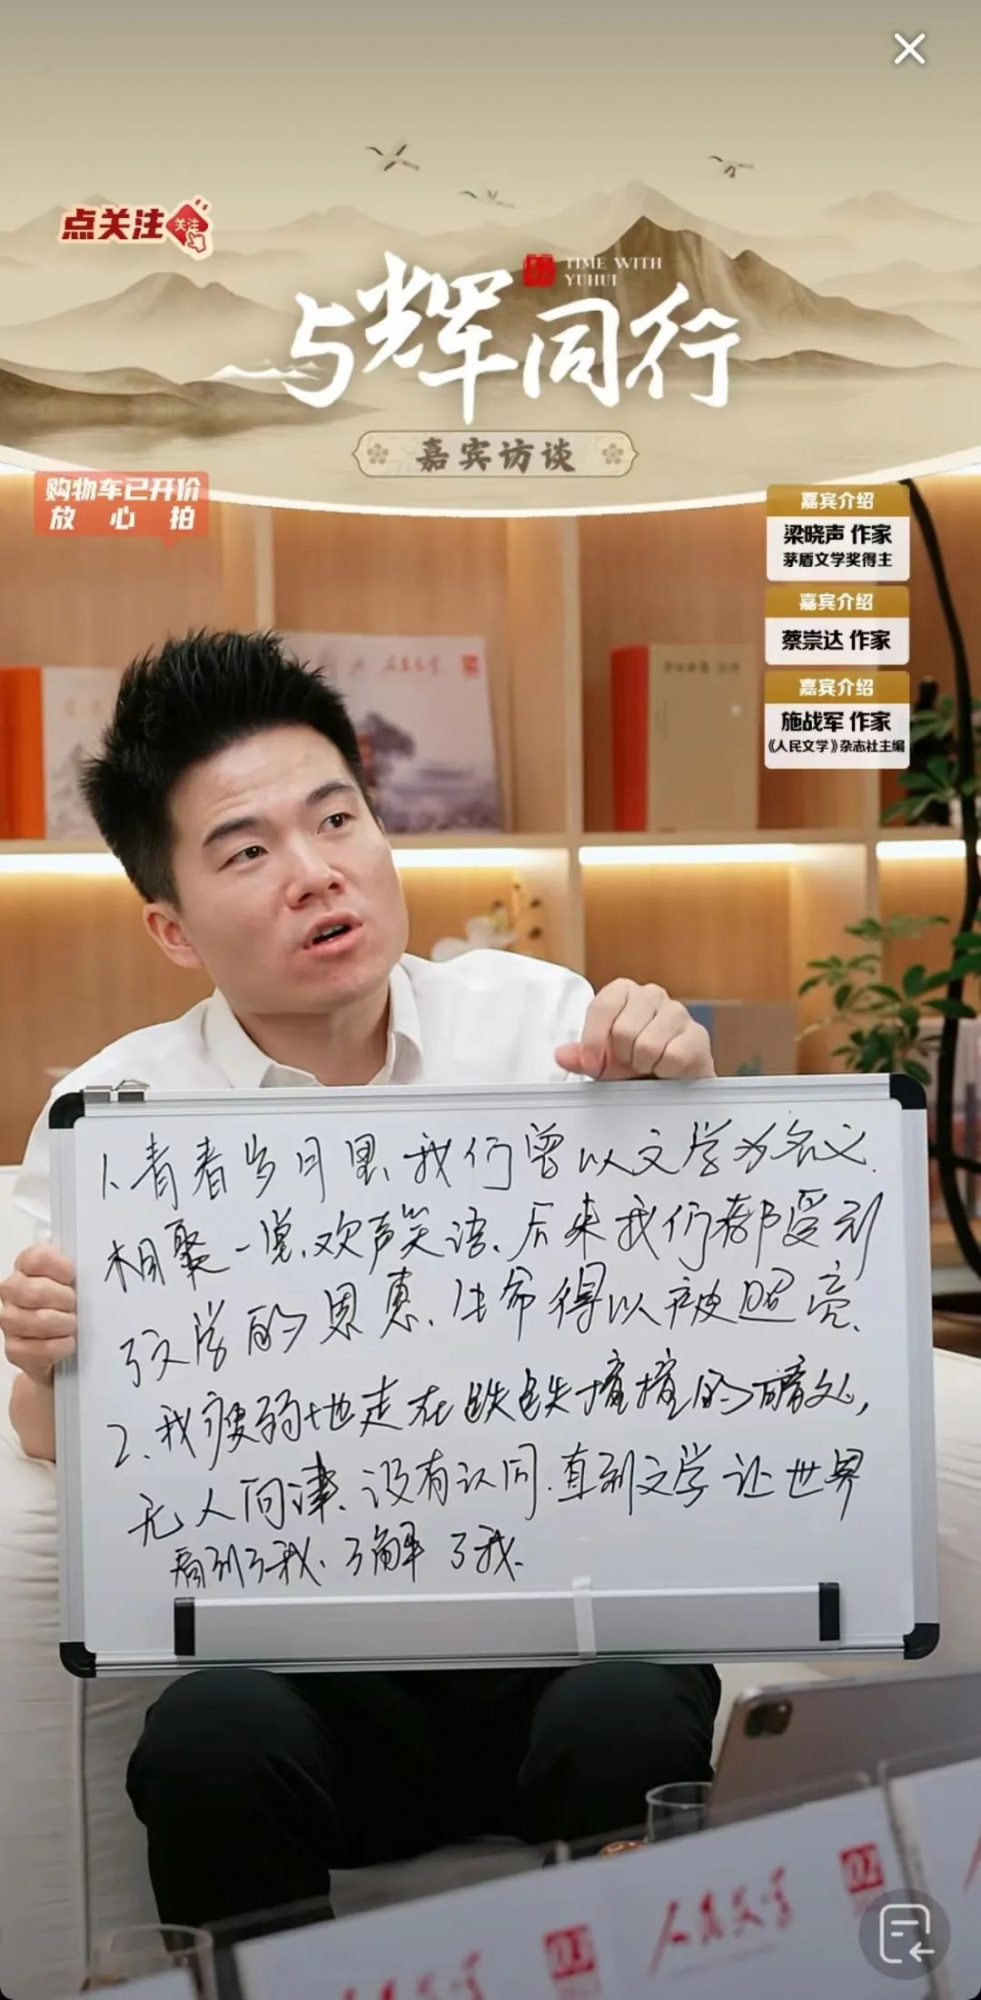 点关注
关注
TIME WITH
YUHUI
与辉同行
嘉宾访谈
购物车已开价
放心拍
嘉宾介绍
梁晓声 作家
茅盾文学奖得主
嘉宾介绍
蔡崇达 作家
嘉宾介绍
施战军 作家
《人民文学》杂志社主编
人民文学
1.青春岁月里、我们曾以文学为名义.
相聚一堂、欢声笑语、后来我们都受到
了文学的恩惠、生命得以被照亮、
2、我疲弱地走在跌跌撞撞的暗处,
无人问津、没有认同.直到文学让世界
看到了我、了解了我.
人民文学
02
人民文学
03